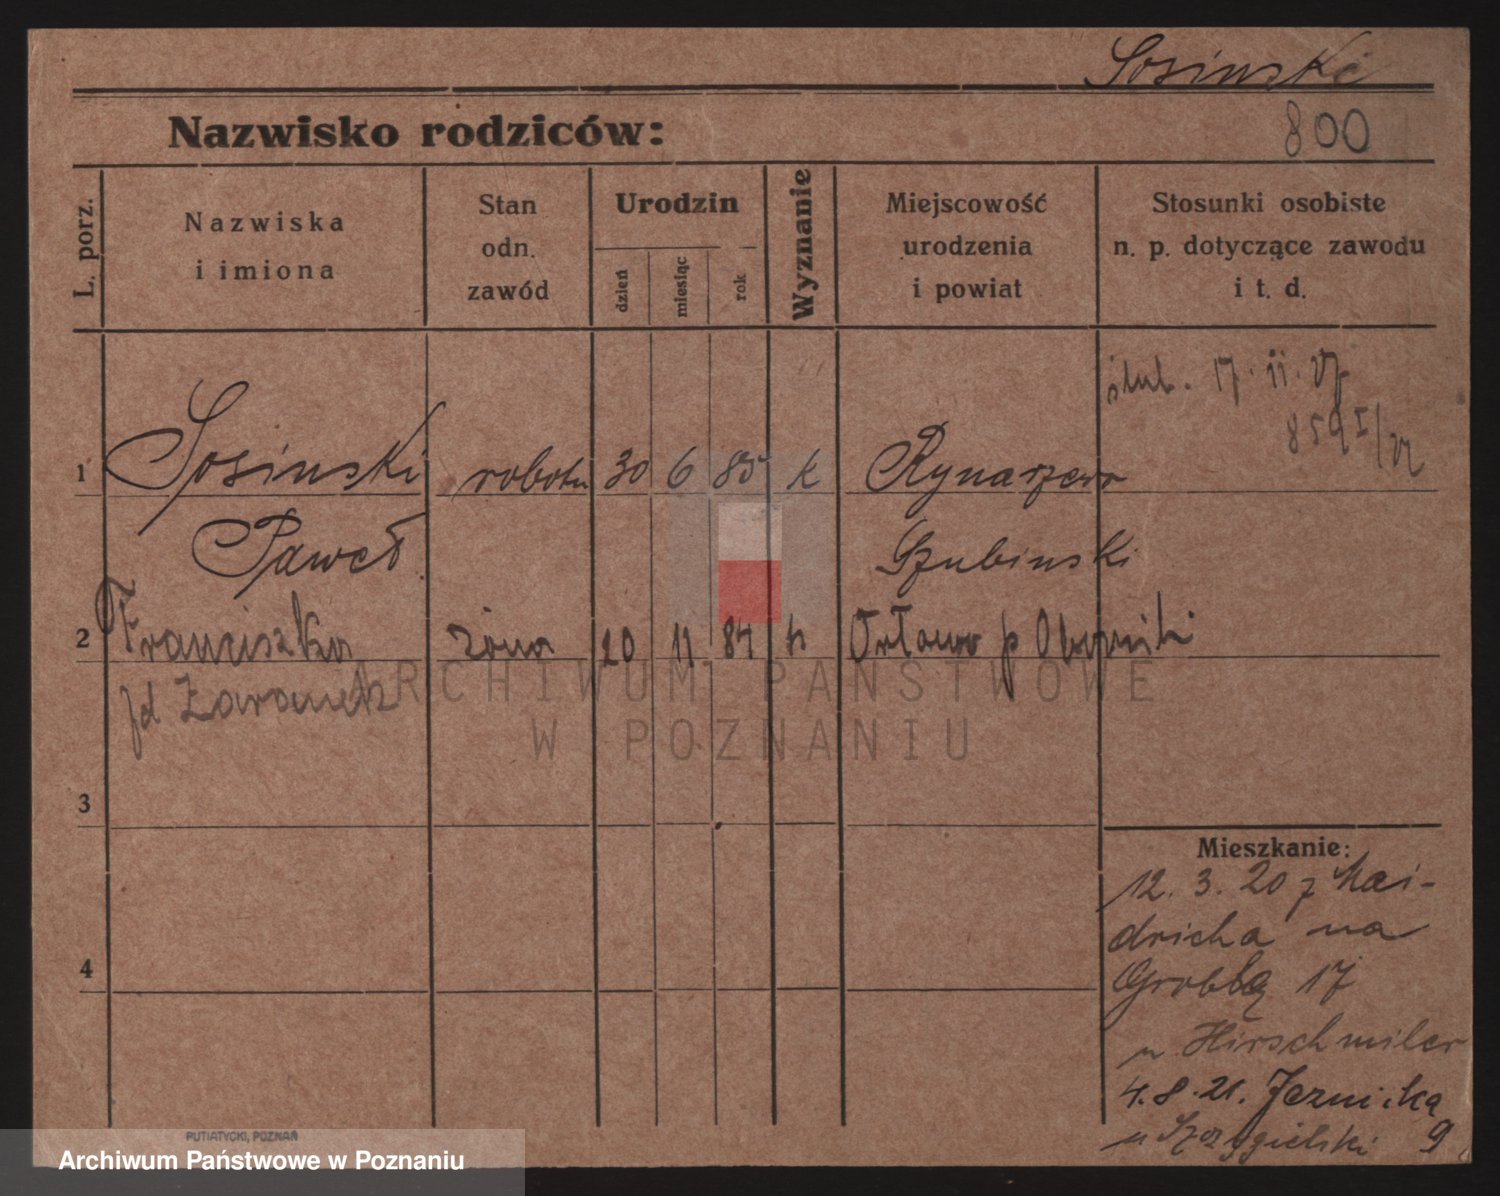 Sosinski
Nazwisko rodziców:
800
L. porz.
Nazwiska
i imiona
Stan
odn.
zawód
Urodzin
dzień
miesiąc
rok
Wyznanie
Miejscowość
urodzenia
i powiat
Stosunki osobiste
n. p. dotyczące zawodu
i t. d.
ślub. 17. 11. 27
1 Sosinski robotn 30 6 85 k Rynarzewo
Paweł Szubinski
2 Franciszka żona 20 11 84 k Orłowo p Oborniki
ARCHIWUM PAŃSTWOWE
W POZNANIU
3
Mieszkanie:
12. 3. 20 z
na
4
Groblą 17
u Hirschmiler
4. 8. 21.
9
PUTIATYCKI, POZNAŃ
Archiwum Państwowe w Poznaniu